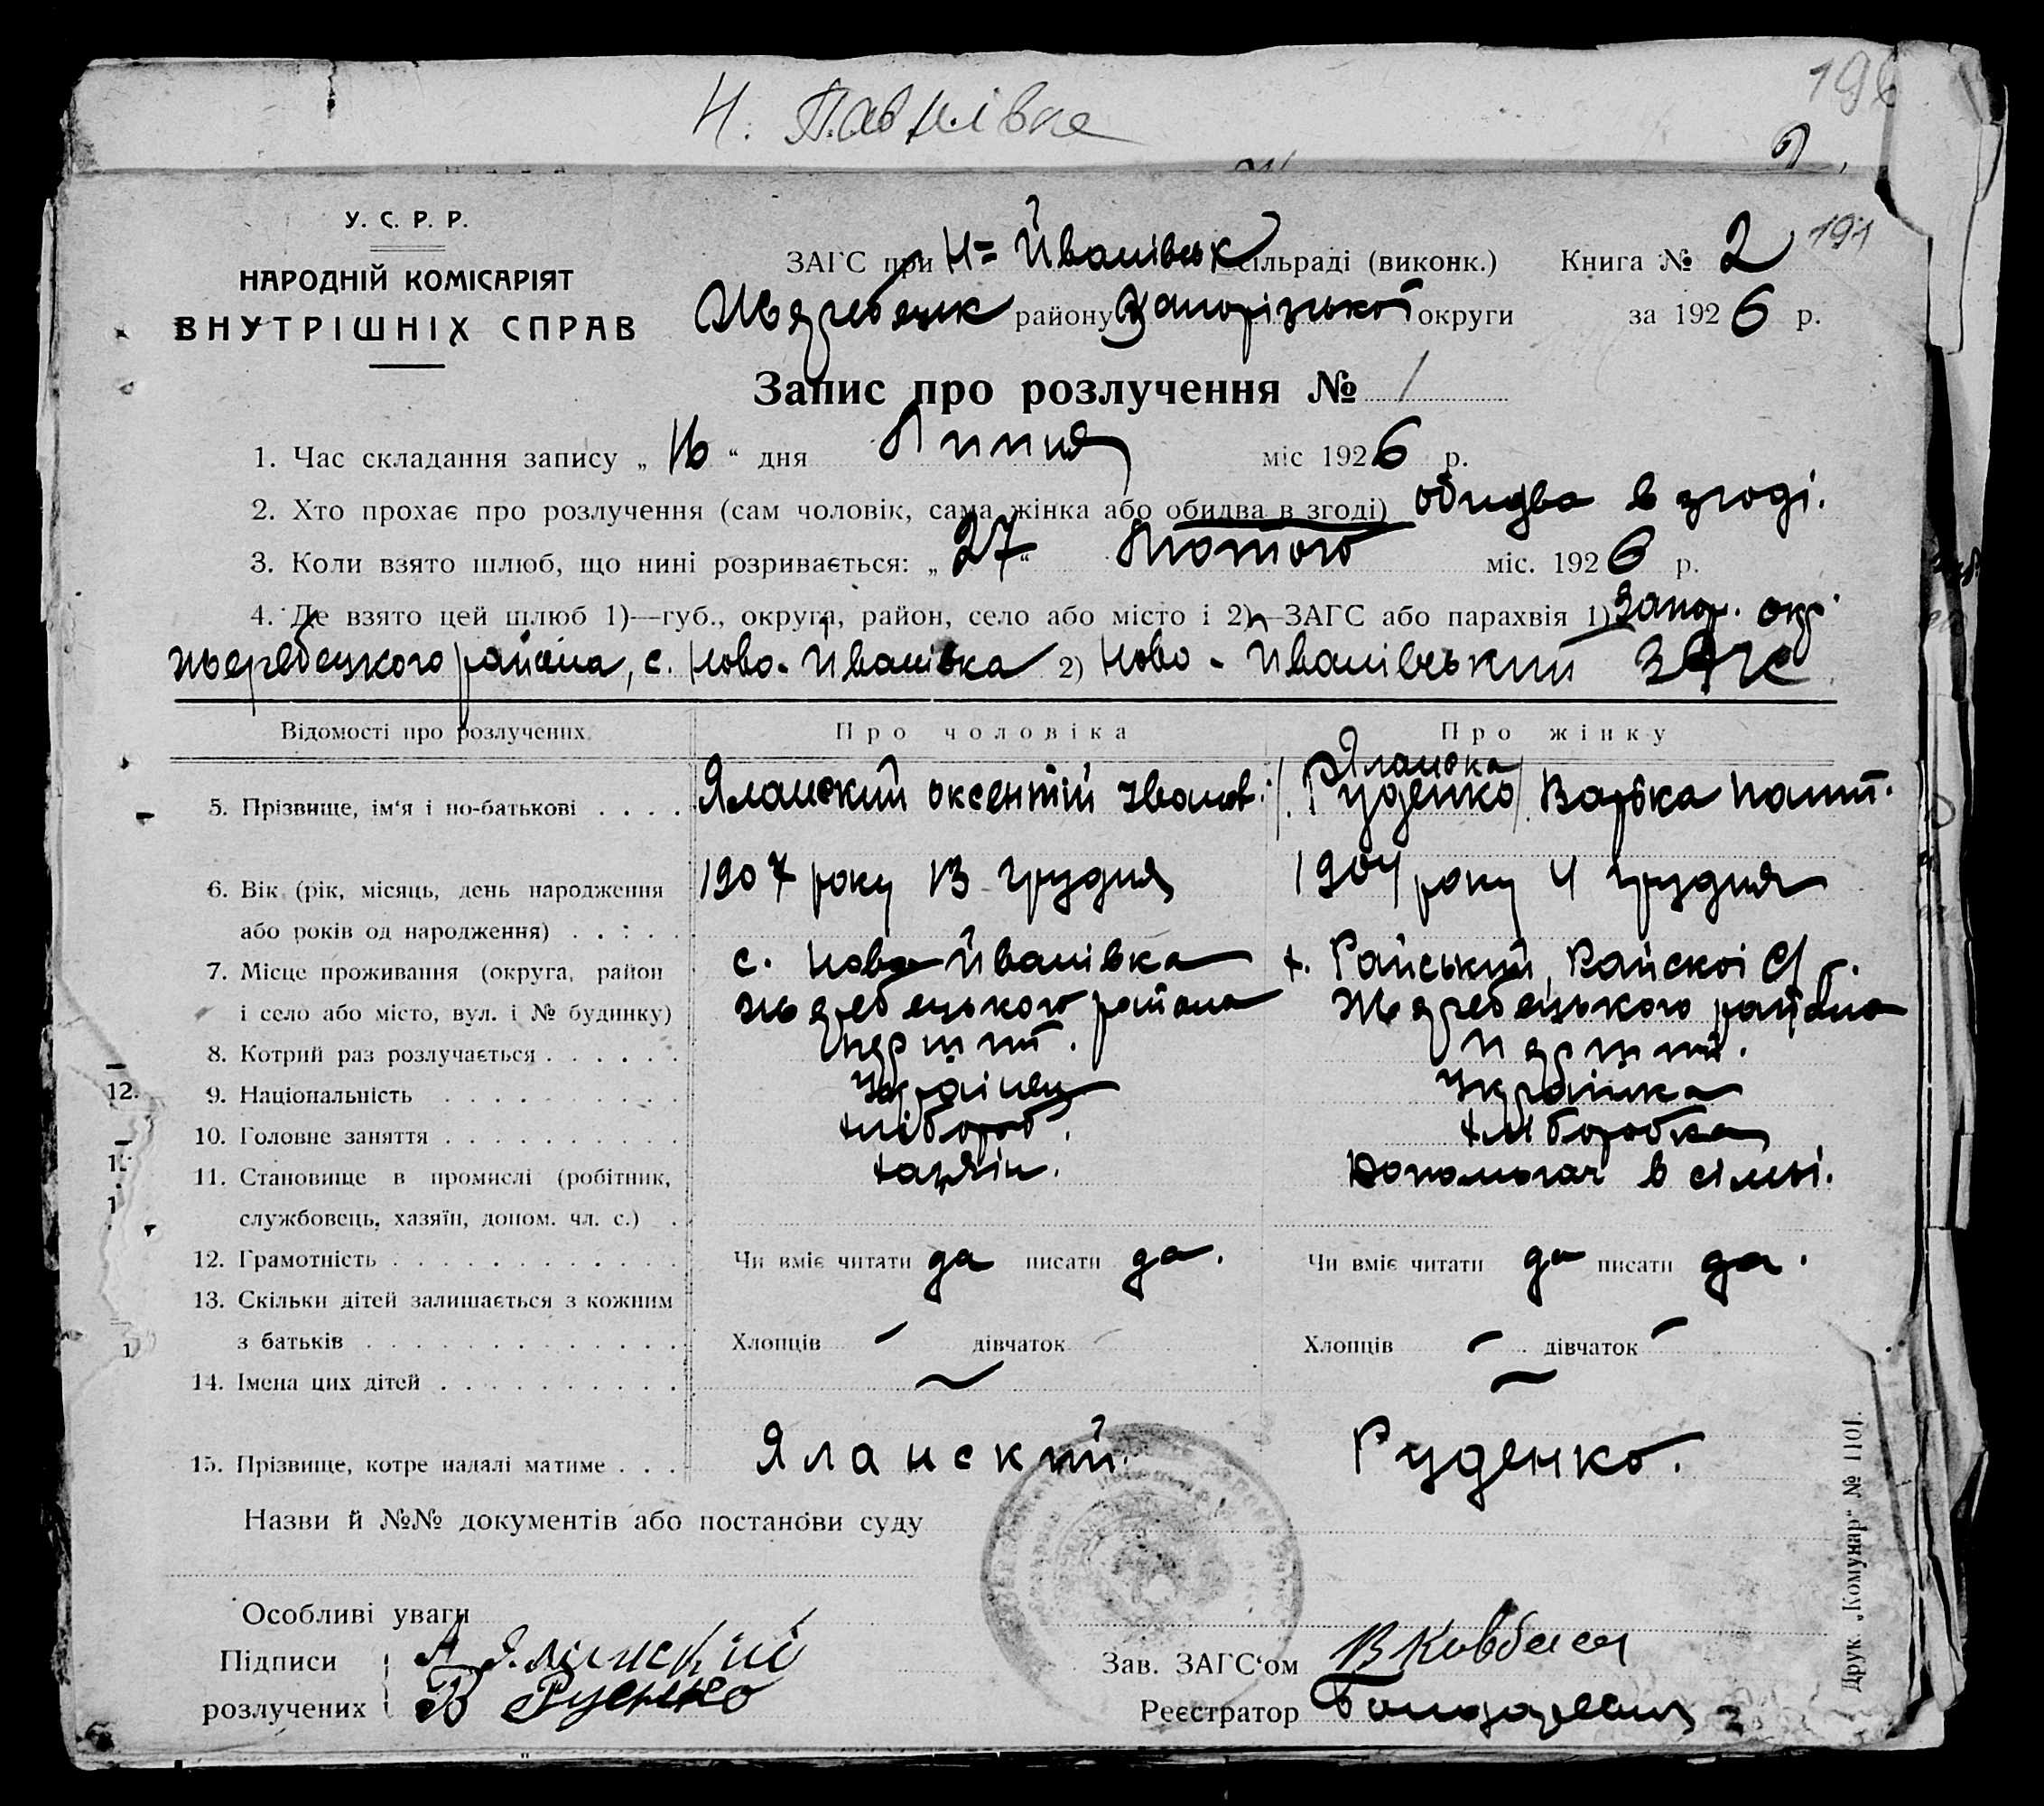 Н. Павлівка
У. С. Р. Р.
НАРОДНІЙ КОМІСАРІЯТ
ВНУТРІШНІХ СПРАВ
ЗАГС при Н= Йванівськ сільраді (виконк.) Книга № 2 191
Жеребецьк району Запорізької округи за 1926 р.
Запис про розлучення № 1
1. Час складання запису „16“ дня Липня міс 1926 р.
2. Хто прохає про розлучення (сам чоловік, сама жінка або обидва в згоді) обидва в згоді.
3. Коли взято шлюб, що нині розривається: „27“ Лютого міс. 1926 р.
4. Де взято цей шлюб 1)—губ., округа, район, село або місто і 2)—ЗАГС або парахвія 1) Запор. окр.
жеребецкого района, с. Ново-Йванівка 2) Ново-Иванівський ЗАГС
Відомості про розлучених Про чоловіка Про жінку
Яланска
5. Прізвище, ім'я і по-батькові . . . . Яланский Оксентій Іванов. /Руденко/ Варька Пант.
6. Вік (рік, місяць, день народження 1907 року 13 грудня 1904 року 4 грудня
або років од народження) . . . . .
7. Місце проживання (округа, район с. Ново-Йванівка х. Райський, Райскої С/р.
і село або місто, вул. і № будинку) Жеребецького района Жеребецького района
8. Котрий раз розлучається . . . . . . перший. перший.
9. Національність . . . . . . . . . Українец Українка
10. Головне заняття . . . . . . . . . хлібороб. хліборобка
11. Становище в промислі (робітник, хазяін. Допомогач в сімьі.
службовець, хазяїн, допом. чл. с.) .
12. Грамотність . . . . . . . . . . . Чи вміє читати да писати да. Чи вміє читати да писати да.
13. Скільки дітей залишається з кожним
з батьків . . . . . . . . . . . . Хлопців – дівчаток – Хлопців – дівчаток –
14. Імена цих дітей . . . . . . . . . . – –
15. Прізвище, котре надалі матиме . . . Яланский. Руденко.
Назви й №№ документів або постанови суду
Особливі уваги
Підписи А Яланский Зав. ЗАГС'ом В Ковбаса
розлучених В Руденко Реєстратор
Друк. „Комунар“ № 1101.